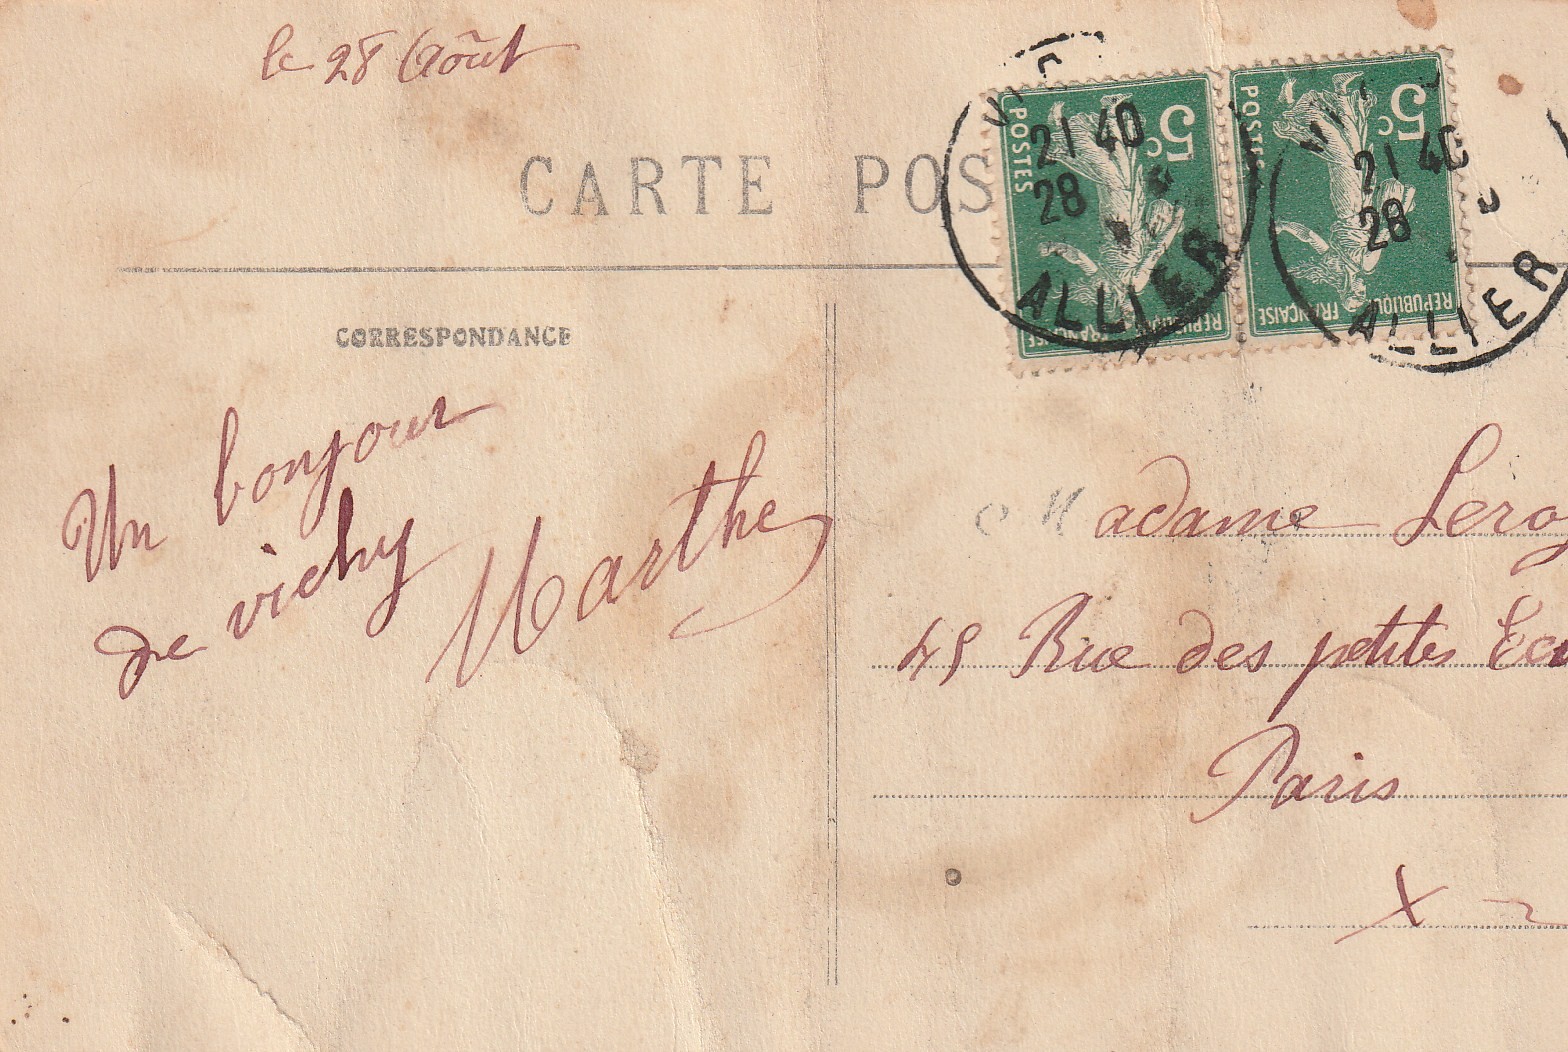 le 28 Août
CARTE POS
5c POSTES
5c POSTES
REPUBLIQUE FRANÇAISE
21 40
28
ALLIER
21 40
28
ALLIER
CORRESPONDANCE
Un bonjour
de vichy
Marthe
Madame Leroy
45 Rue des petites Ecu
Paris
X